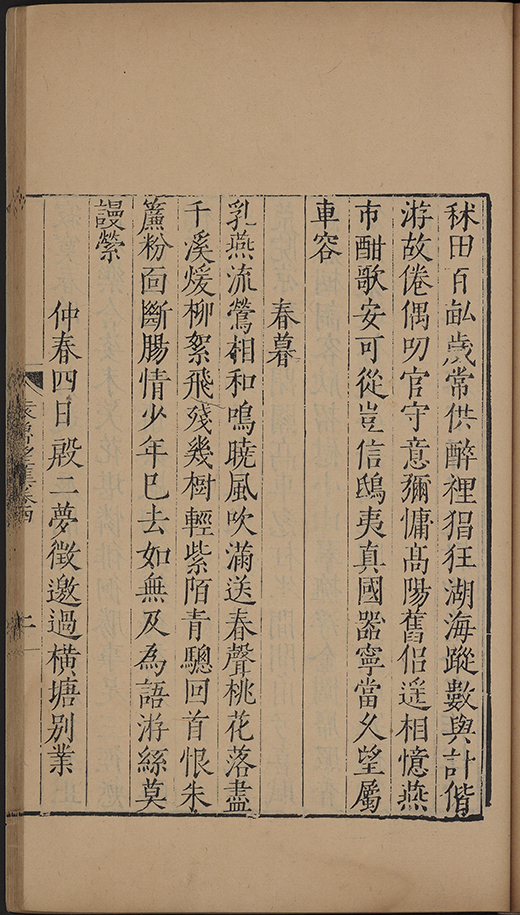 秫田百畝歲常供醉裡猖狂湖海蹤數與計偕
游故倦偶叨官守意彌慵高陽舊侣遥相憶燕
市酣歌安可從豈信鴟夷真國器寧當久望屬
車容
春暮
乳燕流鶯相和鳴曉風吹滿送春聲桃花落盡
千溪煖柳絮飛殘幾樹輕紫陌青驄回首恨朱
簾粉面斷腸情少年已去如無及為語游絲莫
謾縈
仲春四日殿二夢徵邀過横塘别業
袁魯望集卷四
二